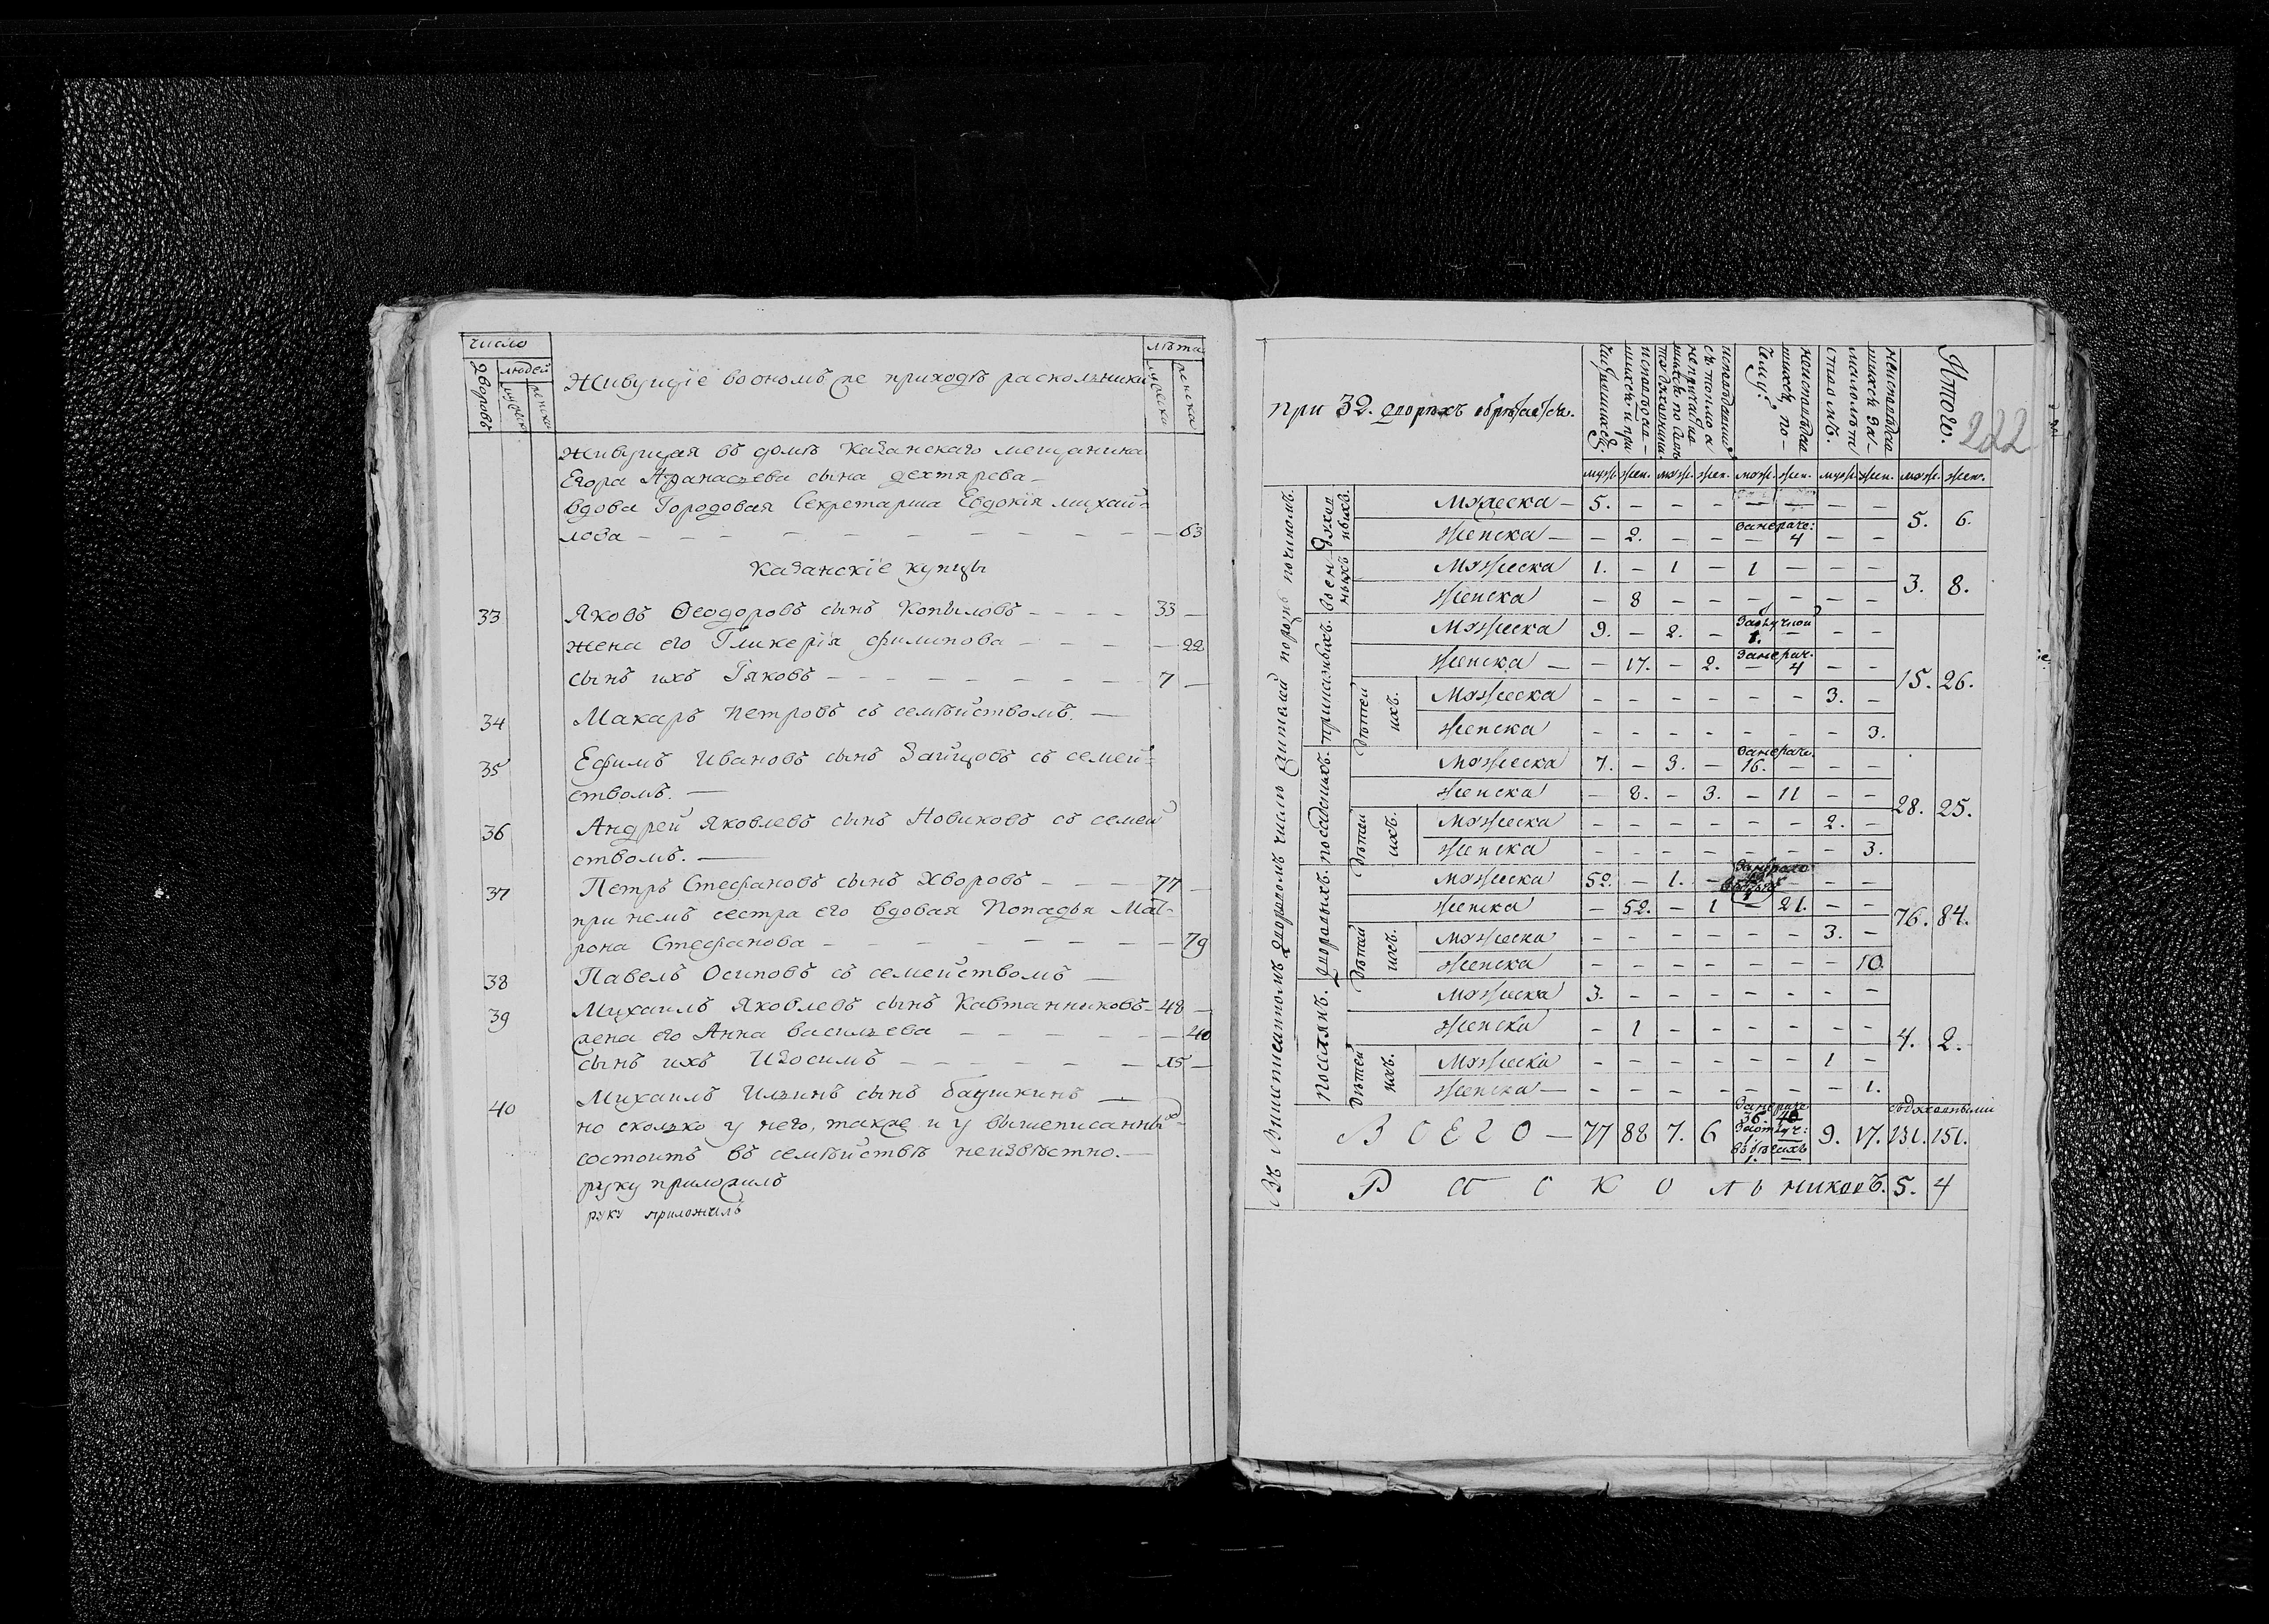 число
лѣта
дворовъ
людей
мужеска
женска
Живущіе во ономъ же приходѣ раскольники
мужеска
женска
живущая въ домѣ Казанскаго мещанина
Егора Афанасьева сына дехтярева –
вдова Городовая Секретарша Евдокія михай=
лова – – – – – – – – – – 63
Казанскіе купцы
33 Яковъ Ѳеодоровъ сынъ Копыловъ – – – – 33 –
жена его Гликерія филипова – – – – – 22
сынъ ихъ Іяковъ – – – – – – – – 7 –
34 Макаръ Петровъ съ семѣйствомъ. –
35 Ефимъ Ивановъ сынъ Зайцовъ съ семей=
ствомъ. –
36 Андрей Яковлевъ сынъ Новиковъ съ семей
ствомъ. –
37 Петръ Стефановъ сынъ Хворовъ – – – 77 –
при немъ сестра его вдовая Попадья Мат-
рона Стефанова – – – – – – – – 79
38 Павелъ Осиповъ съ семействомъ –
39 Михаилъ Яковлевъ сынъ Кавтанниковъ – 48 –
жена его Анна васильева – – – – – 40
сынъ ихъ Изосимъ – – – – – – 15 –
40 Михаилъ Ильинъ сынъ баушкинъ –
но сколько у него, также и у вышеписанныхъ
состоитъ въ семѣйствѣ неизвѣстно. –
руку приложилъ
руку приложилъ
222
при 32. дворѣхъ обрѣтается.
Итого.
муж. жен. муж. жен. муж. жен. муж. жен. муж. жен.
Духов
ныхъ
Мужеска – 5. – – – – – – – 5. 6.
занерач:
Женска – – 2. – – – 4 – –
воен
ныхъ
Мужеска 1. – 1 – 1 – – – 3. 8.
Женска – 8 – – – – – –
приказныхъ.
заотлучкой
Мужеска 9. – 2. – 1. – – – 15. 26.
занерач.
Женска – – 17. – 2. – 4 – –
Дѣтей
ихъ.
Мужеска – – – – – – 3. –
Женска – – – – – – – 3.
посадскихъ.
занерач.
Мужеска 7. – 3. – 16. – – – 28. 25.
Женска – 8. – 3. – 11 – –
Дѣтей
ихъ.
Мужеска – – – – – – 2. –
Женска – – – – – – – 3.
дворовыхъ.
Мужеска 52. – 1. – – – – 76. 84.
Женска – 52. – 1 – 21. – –
Дѣтей
ихъ.
Мужеска – – – – – – 3. –
Женска – – – – – – – 10.
поселянъ.
Мужеска 3. – – – – – – – 4. 2.
Женска – 1 – – – – – –
Дѣтей
ихъ.
Мужеска – – – – – – 1 –
Женска – – – – – – – – 1.
Всего – 77 88 7. 6 9. 17. 131. 151.
Раскольниковъ. 5. 4